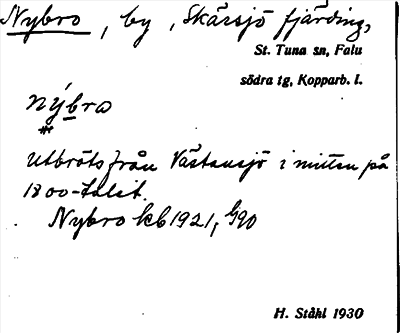 Nybro, by, Skärsjö fjärding,
St. Tuna sn, Falu
södra tg, Kopparb. l.
nýbro
Utbröts från Västansjö i mitten på
1800-talet.
Nybro kb 1921, 990
H. Ståhl 1930